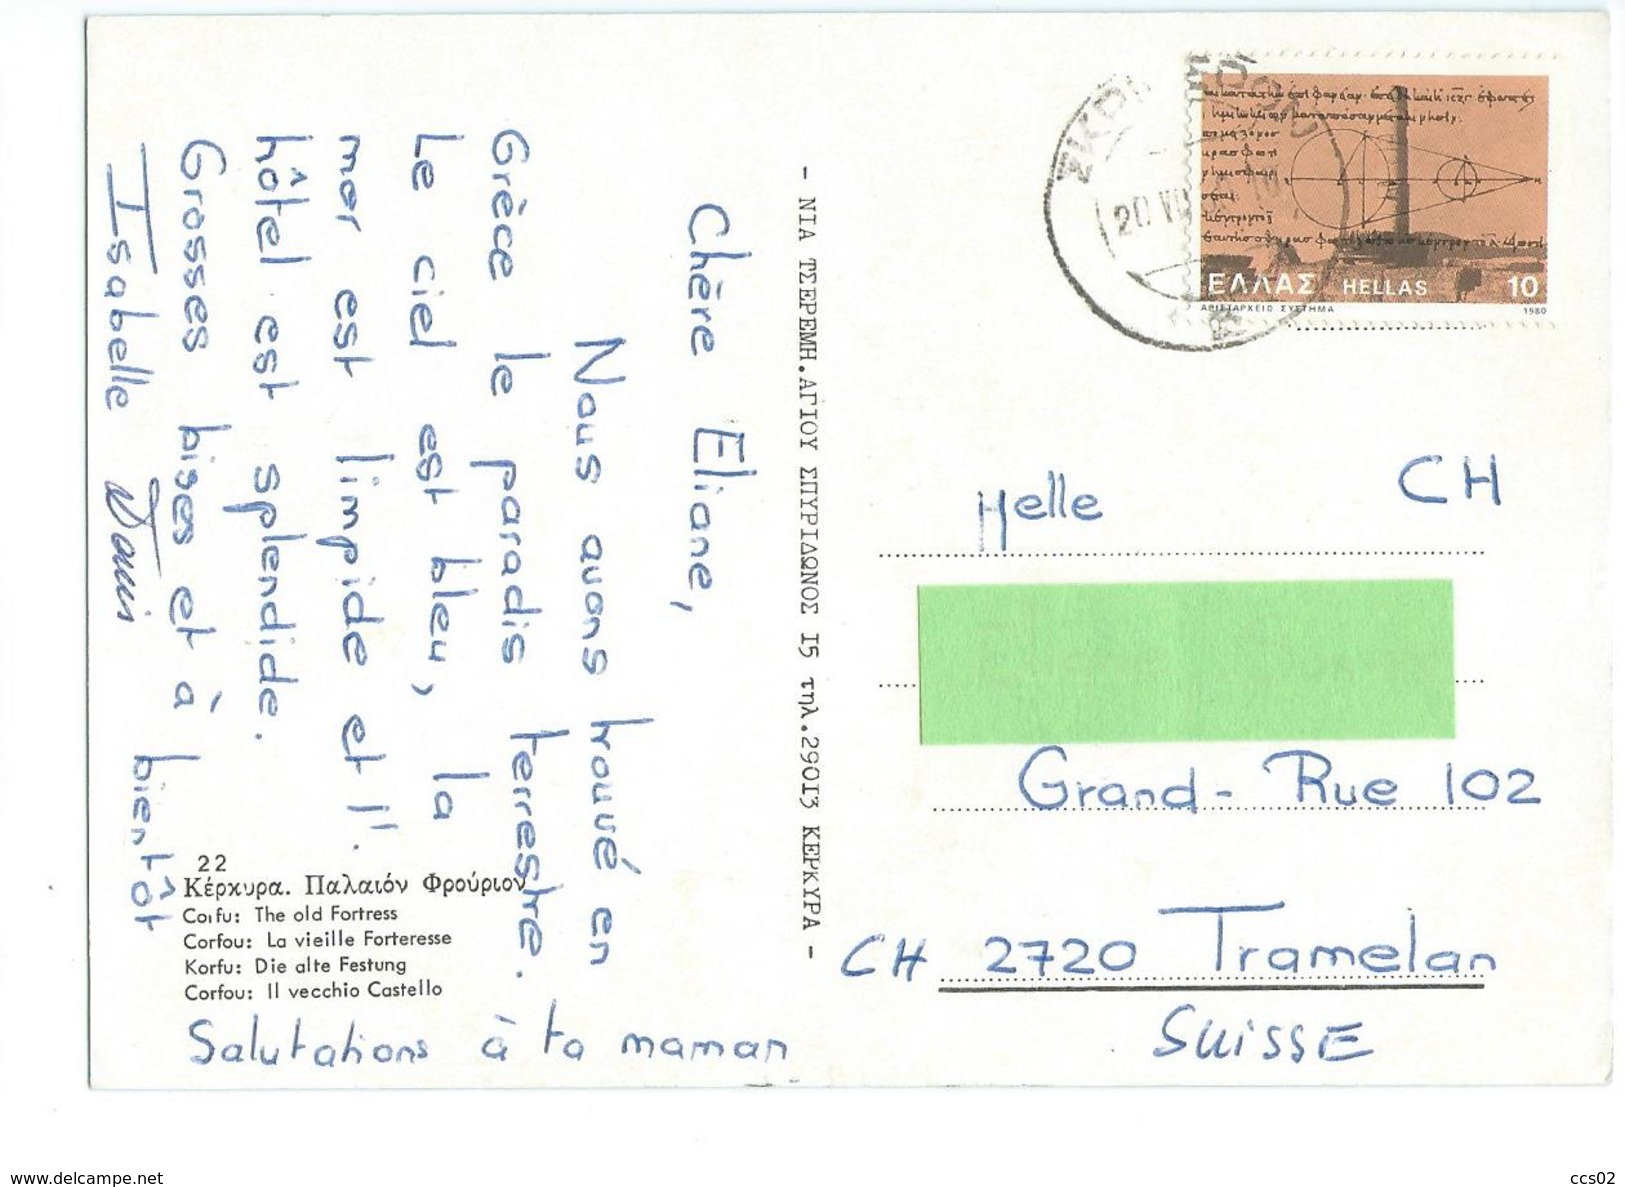 Chère Eliane,
Nous avons trouvé en
Grèce le paradis terrestre.
Le ciel est bleu, la
mer est limpide et l'
hôtel est splendide.
Grosses bises et à bientôt
Isabelle
Salutations à ta maman
22
Κέρκυρα. Παλαιόν Φρούριον
Corfu: The old Fortress
Corfou: La vieille Forteresse
Korfu: Die alte Festung
Corfou: Il vecchio Castello
- ΝΙΑ ΤΣΕΡΕΜΗ.ΑΓΙΟΥ ΣΠΥΡΙΔΩΝΟΣ Ι5 τηλ.290Ι3 ΚΕΡΚΥΡΑ -
ΕΛΛΑΣ HELLAS 10
ΑΡΙΣΤΑΡΧΕΙΟ ΣΥΣΤΗΜΑ 1980
20
CH
Helle
Grand-Rue 102
CH 2720 Tramelan
SUISSE
www.delcampe.net
ccs02